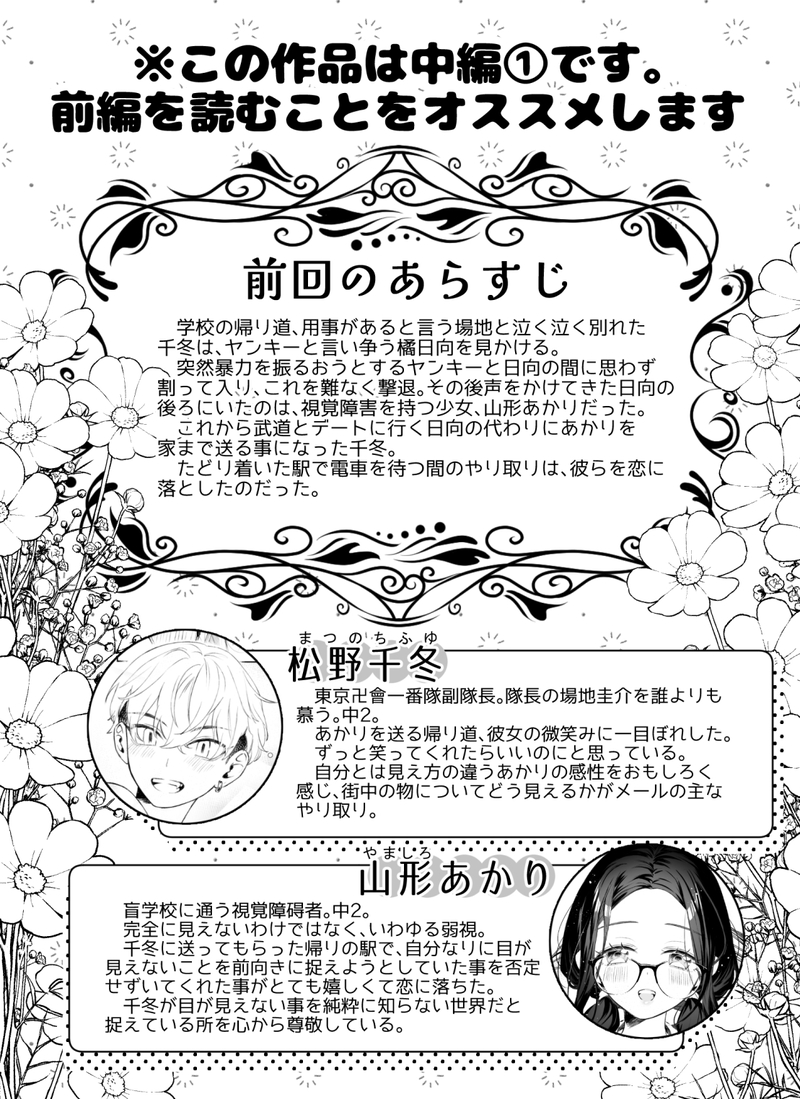 ※この作品は中編①です。
前編を読むことをオススメします
前回のあらすじ
学校の帰り道、用事があると言う場地と泣く泣く別れた
千冬は、ヤンキーと言い争う橘日向を見かける。
突然暴力を振るおうとするヤンキーと日向の間に思わず
割って入り、これを難なく撃退。その後声をかけてきた日向の
後ろにいたのは、視覚障害を持つ少女、山形あかりだった。
これから武道とデートに行く日向の代わりにあかりを
家まで送る事になった千冬。
たどり着いた駅で電車を待つ間のやり取りは、彼らを恋に
落としたのだった。
まつのちふゆ
松野千冬
東京卍會一番隊副隊長。隊長の場地圭介を誰よりも
慕う。中2。
あかりを送る帰り道、彼女の微笑みに一目ぼれした。
ずっと笑ってくれたらいいのにと思っている。
自分とは見え方の違うあかりの感性をおもしろく
感じ、街中の物についてどう見えるかがメールの主な
やり取り。
やましろ
山形あかり
盲学校に通う視覚障碍者。中2。
完全に見えないわけではなく、いわゆる弱視。
千冬に送ってもらった帰りの駅で、自分なりに目が
見えないことを前向きに捉えようとしていた事を否定
せずいてくれた事がとても嬉しくて恋に落ちた。
千冬が目が見えない事を純粋に知らない世界だと
捉えている所を心から尊敬している。